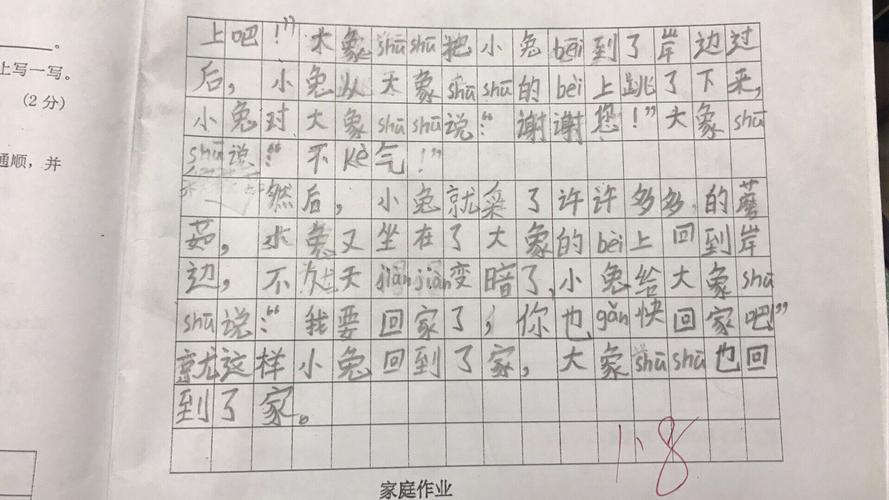 上吧!”大象shūshū把小兔bēi到了岸边过
后,小兔从大象shūshū的bèi上跳了下来,
小兔对大象shūshū说:“谢谢您!”大象shū
shū说:“不kè气!”
然后,小兔就采了许许多多,的蘑
菇,小兔又坐在了大象的bèi上回到岸
边,不久天jiànjiàn变暗了,小兔给大象shū
shū说:“我要回家了,你也gǎn快回家吧!”
就这样小兔回到了家,大象shūshū也回
到了家。
118
家庭作业
。
上写一写。
(2分)
通顺,并